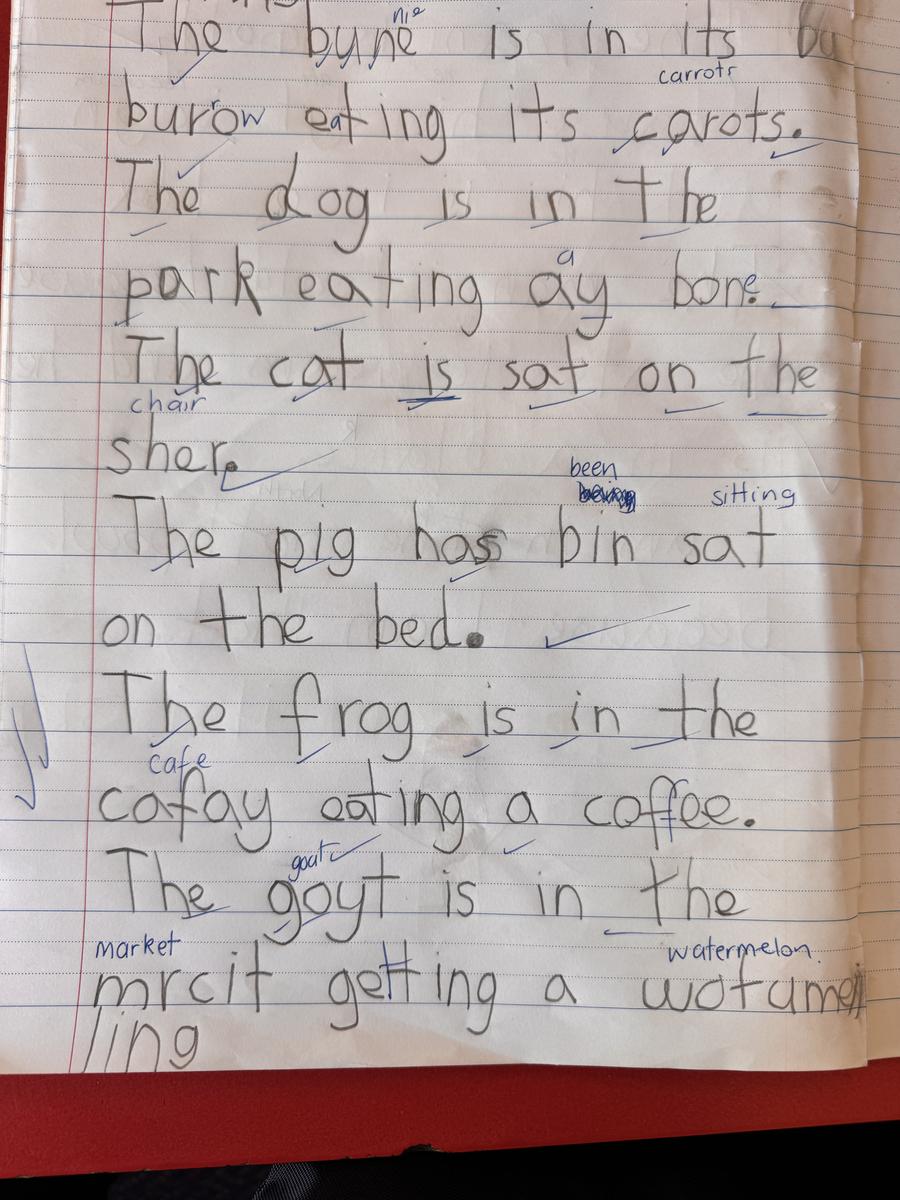 nie
The byne is in its bu
carrots
burow eating its carots.
The dog is in the
a
park eating ay bone.
The cat is sat on the
chair
sher.
been
sitting
The pig has bin sat
on the bed.
The frog is in the
cafe
cafay eating a coffee.
goat
The goyt is in the
market watermelon.
mrcit getting a wotamel
ling